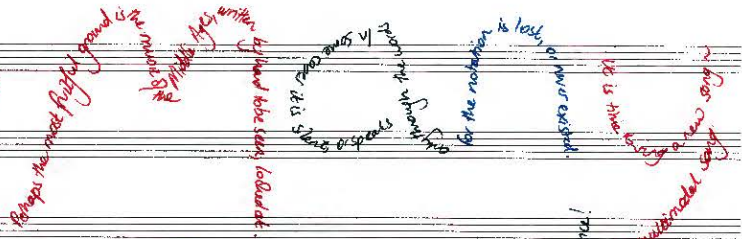 Perhaps the most fruitful ground is the music of the Middle Ages, written by hand to be seen, looked at.
In some cases it is
speaks only through the words
for the notation is lost, or never existed.
it is time to sing a new song
multimodal song